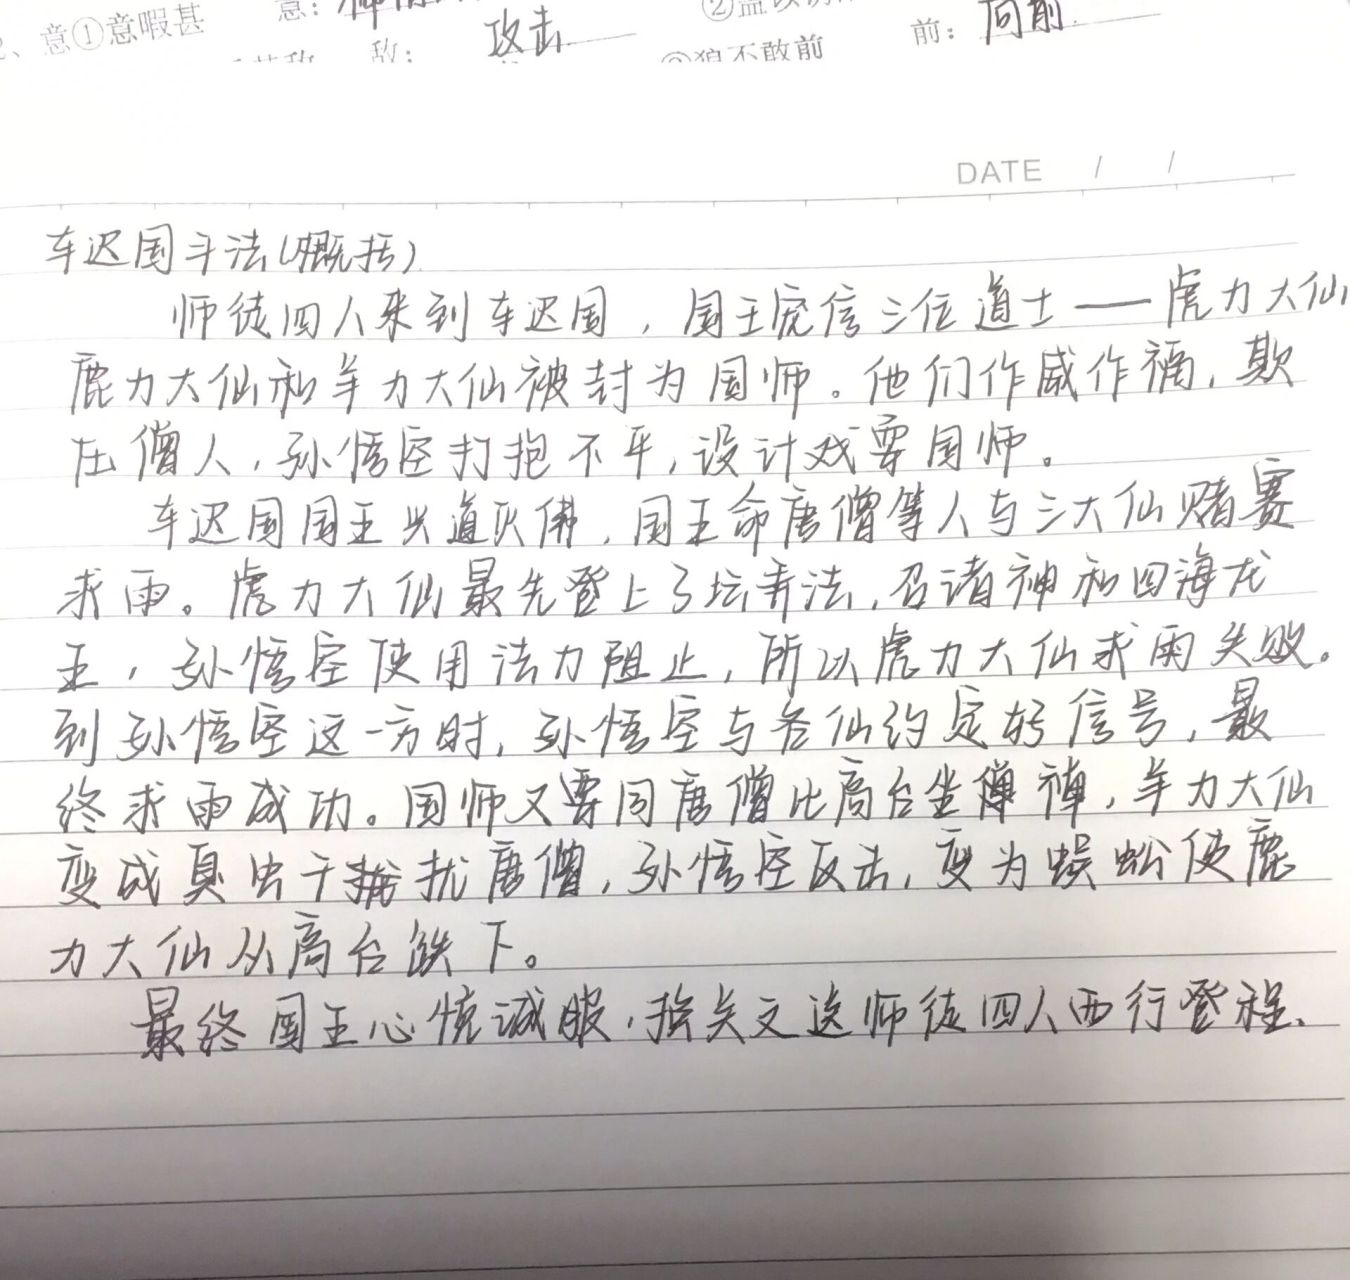 2、意①意暇甚 意：
敌： 攻击 ③狼不敢前 前：向前
DATE / /
车迟国斗法(概括)
师徒四人来到车迟国，国王宠信三位道士——虎力大仙
鹿力大仙和羊力大仙被封为国师。他们作威作福，欺
压僧人，孙悟空打抱不平，设计戏耍国师。
车迟国国王兴道灭佛，国王命唐僧等人与三大仙赌赛
求雨。虎力大仙最先登上了坛弄法，召诸神和四海龙
王，孙悟空使用法力阻止，所以虎力大仙求雨失败。
到孙悟空这一方时，孙悟空与各仙约定好信号，最
终求雨成功。国师又要同唐僧比高台坐禅，羊力大仙
变成臭虫干扰唐僧，孙悟空反击，变为蜈蚣使鹿
力大仙从高台跌下。
最终国王心悦诚服，换关文送师徒四人西行登程、